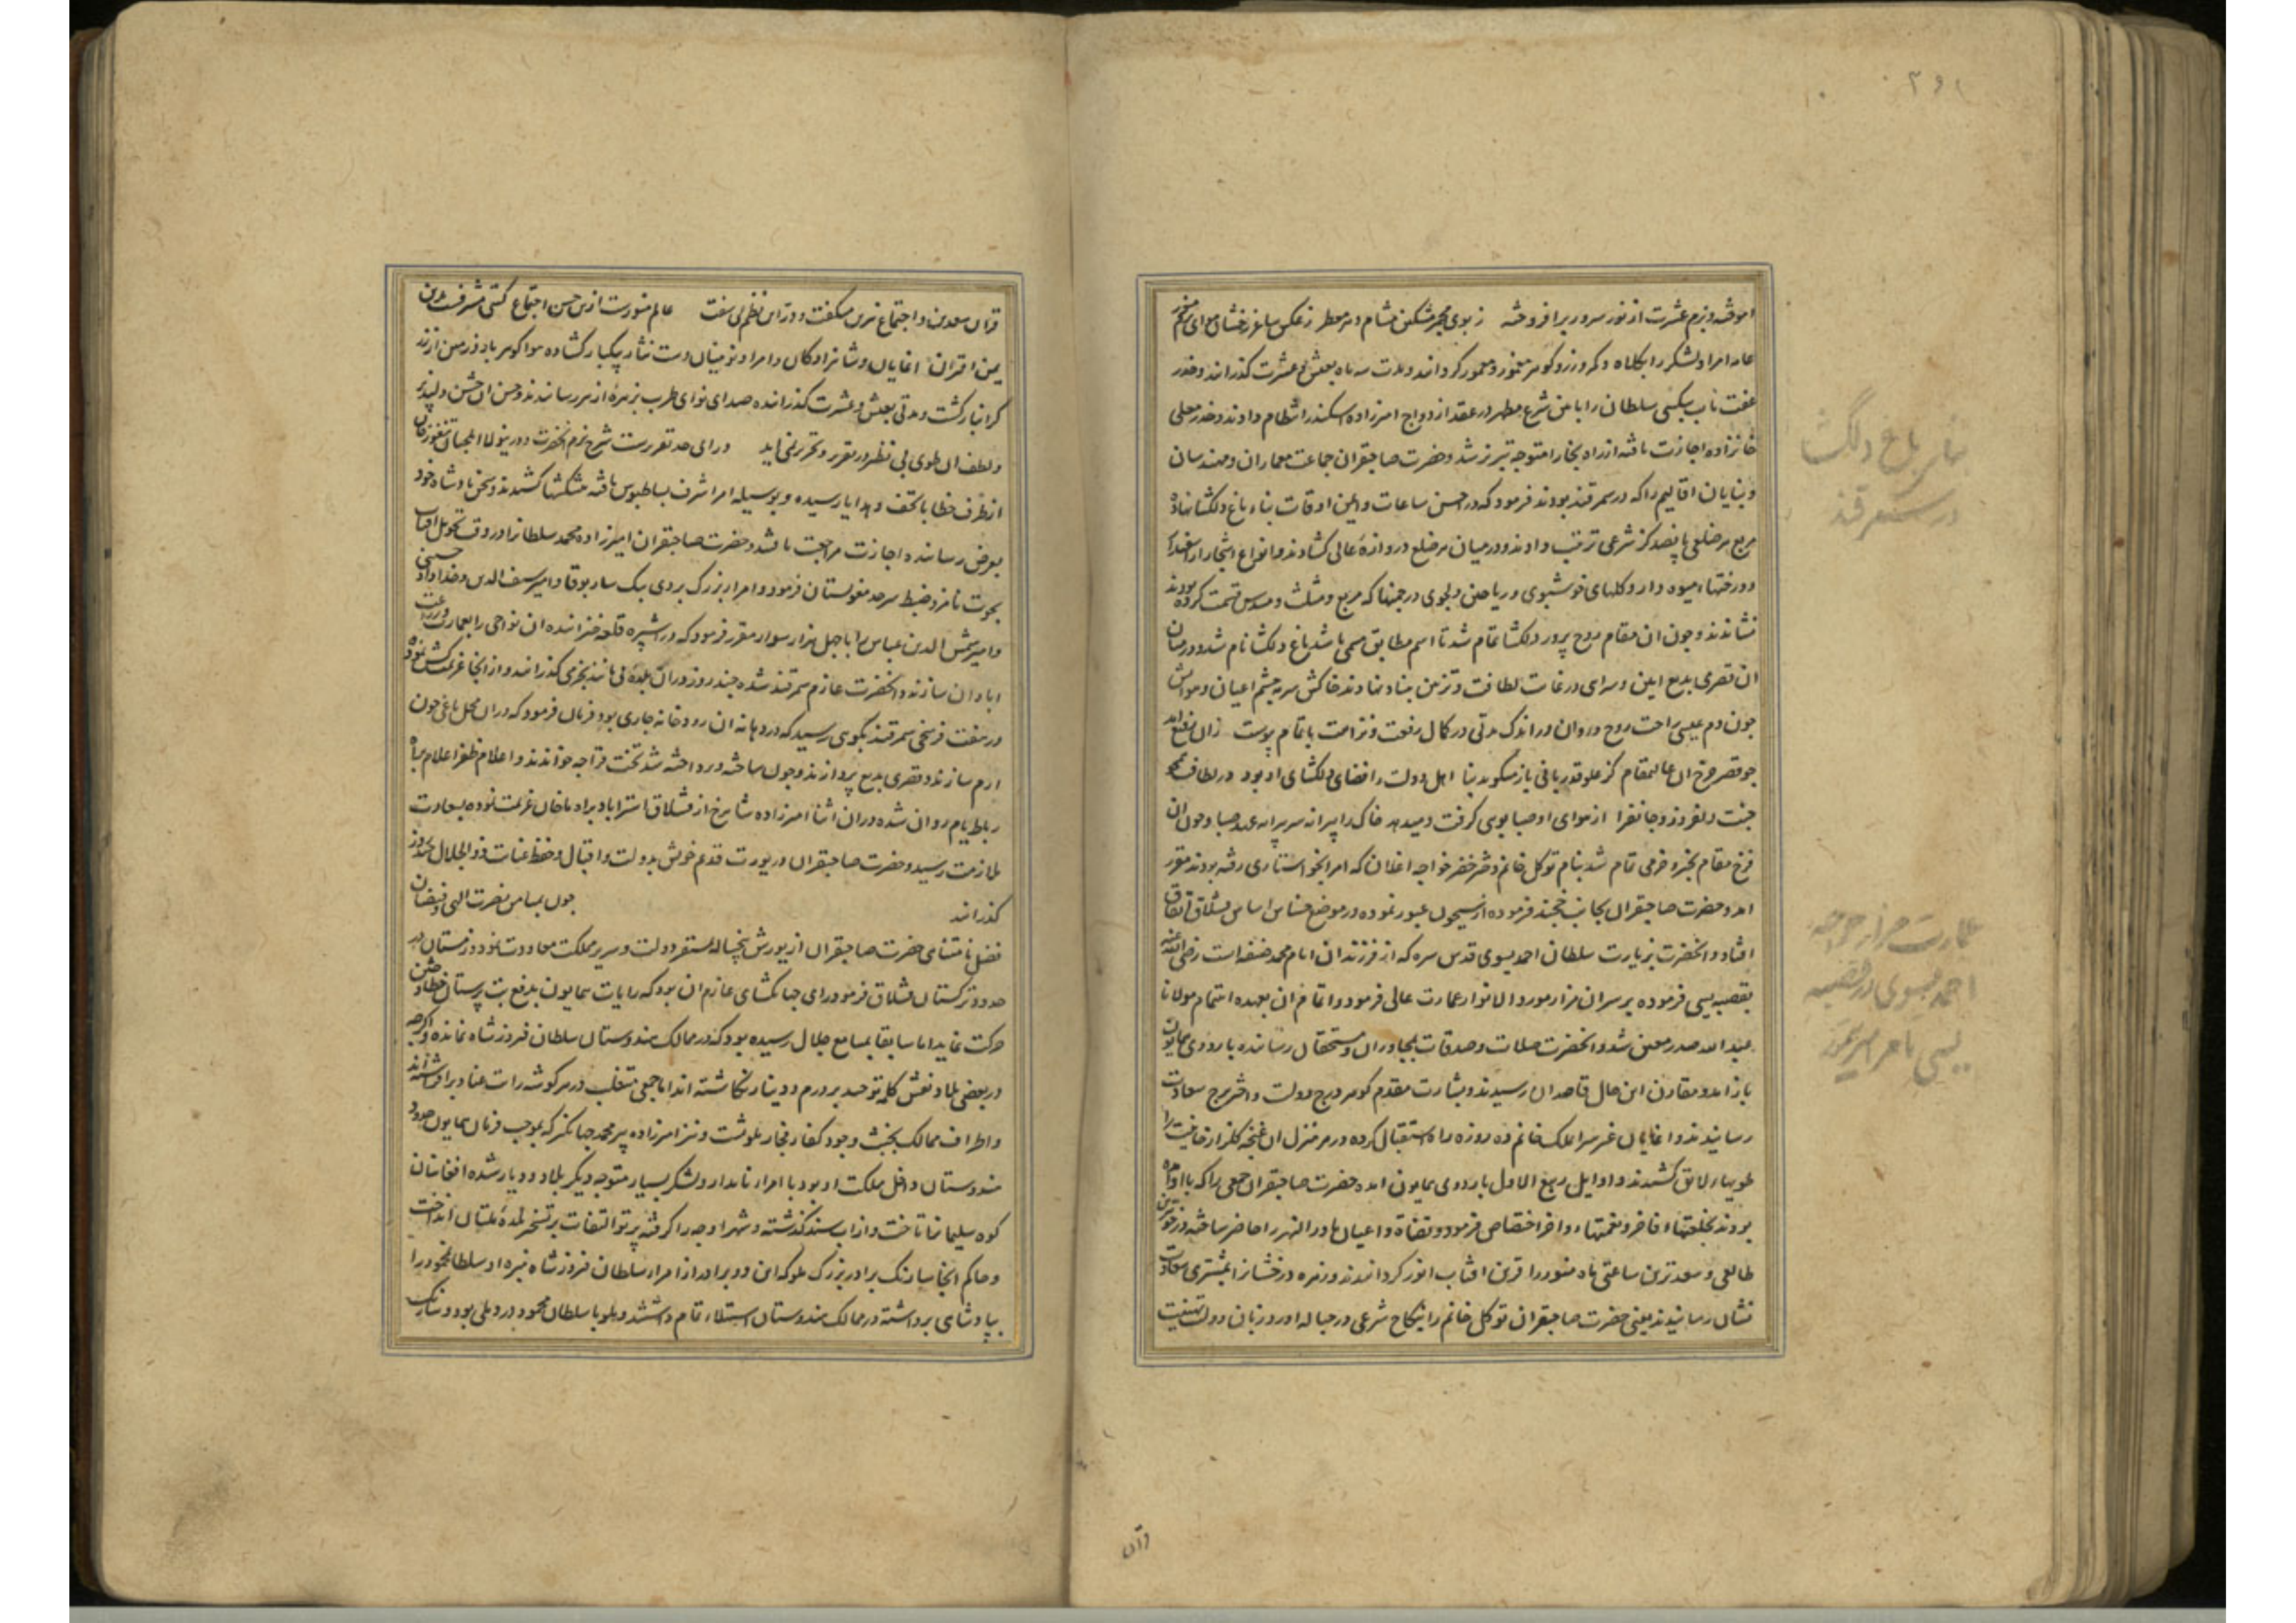 ۳۶۱
اموخته و بزم عشرت از نور سرور برافروخته ز بوی مجمر مشکین مشام دهر معطر ز عکس ساغر رخشان هوای
عامه امرا و لشکر را بکلاه و کمر و زر و کوهر مغمور و معمور کردانید و مدت سه ماه بعیش و عشرت کذرانید و
عفت مآب بیکیسی سلطان را بایین شرع مطهر در عقد ازدواج امیرزاده اسکندر انتظام دادند و خدر معلی
خانزاده اجازت یافته از راه بخارا متوجه تبریز شد و حضرت صاحبقران جماعت معماران و مهندسان
و بنایان اقالیم را که در سمرقند بودند فرمود که در احسن ساعات و ایمن اوقات بناء باغ دلکشا نهاده
مربع هر ضلعی پانصد کز شرعی ترتیب دادند و در میان هر ضلع دروازه عالی کشادند و انواع اشجار از
و درختهاء میوه دار و کلهای خوشبوی و ریاحین دلجوی در چمنها که مربع و مثلث و مسدس قسمت کرده بودند
نشاندند و چون ان مقام روح پرور دلکشا تمام شد تا اسم مطابق مسمی باشد باغ دلکشا نام شد و در میان
ان قصری بدیع ایین و سرای در غایت لطافت و تزیین بنیاد نهادند خاکش سرمه چشم اعیان و هوایش
چون دم عیسی راحت روح و روان در اندک مدتی در کمال رفعت و نزاهت باتمام پیوست
چو قصر چرخ ان عالیمقام کز علو قدر با فی باز میکوید بنا اهل دولت را فضای دلکشای او بود در لطافت
جنت دلفروز و جانفزا از هوای او صبا بوی کرفت و میدهد خاک را پیرانه سر پیرایه عهد صبا و چون ان
فرخ مقام بخیر و خرمی تمام شد بنام توکل خانم دختر خضر خواجه اغلان که امرا بخواستاری رفته بودند مقرر
امد و حضرت صاحبقران بجانب خجند فرموده از سیحون عبور نموده در موضع چناس اساس قشلاق اتفاق
افتاد و انحضرت بزیارت سلطان احمد یسوی قدس سره که از فرزندان امام محمد حنفیه است رضی الله عنه
بقصبه یسی فرموده بر سر ان مزار مورد الانوار عمارت عالی فرمود و اتمام ان بعهده اهتمام مولانا
عبید الله صدر معین شد و انحضرت صلات و صدقات بمجاوران و مستحقان رسانیده باردوی همایون
باز امد و مقارن این حال قاصدان رسیدند و بشارت مقدم کوهر درج دولت و اختر برج سعادت
رسانیدند و اغایان غیر سرا ملک خانم ده روزه راه استقبال کرده در هر منزل ان غنچه کلزار خانیت را
طویهاء لایق کشیدند و اوایل ربیع الاول باردوی همایون امده حضرت صاحبقران جمعی را که با او همراه
بودند بخلعتهاء فاخر و نعمتهاء وافر اختصاص فرمود و قضاة و اعیان ماوراء النهر را حاضر ساخته در
طالعی و سعدترین ساعتی ماه منور را قرین افتاب انور کردانیدند و زهره درخشانرا بمشتری سعادت
نشان رسانیدند یعنی حضرت صاحبقران توکل خانم را بنکاح شرعی در حباله اورد و زبان دولت تهنیت
بنای باغ دلکشا
در سمرقند
عمارت مزار خواجه
احمد یسوی در قصبه
یسی بامر امیر تیمور
وان
قران سعدین و اجتماع نیرین میکفت و در این نظم می سفت عالم منورست ازین حسن اجتماع کیتی مشرفست بدین
یمن اقتران اغایان و شاهزادکان و امرا و نوینیان دست نثار بیکبار کشاده هوا کوهر بار و زمین از زر
کرانبار کشت و مدتی بعیش و عشرت کذرانیده صدای نوای طرب بزهره ازهر رسانیدند و حسن ان جشن دلپذیر
و لطف ان طوی بی نظیر در تقریر و تحریر نمی اید ورای حد تقریرست شرح بزم انحضرت و در ینولا ایلچیان تنغوز خان
از طرف خطا با تحف و هدایا رسیده و بوسیله امرا شرف بساطبوس یافته پیشکشها کشیدند و سخن پادشاه خود
بعرض رسانیده اجازت مراجعت یافتند و حضرت صاحبقران امیرزاده محمد سلطانرا در وقت تحویل افتاب
بحوت نامزد ضبط سرحد مغولستان فرمود و امراء بزرک بردی بیک ساربوقا و امیر سیف الدین و خداداد حسینی
و امیر شمس الدین عباس را با چهل هزار سوار مقرر فرمود که در اشپره قلعه خیزانیده ان نواحی را بعمارت و زراعت
ابادان سازند و انحضرت عازم سمرقند شده چند روز در ان بلده بی مانند بخرمی کذرانید و از انجا عزیمت کش نموده
در هفت فرسخی سمرقند بکوهی رسید که در دهانه ان رودخانه جاری بود فرمان فرمود که در ان محل باغی چون
ارم سازند و قصری بدیع پردازند و چون ساخته و پرداخته شد تخت قراجه خواندند و اعلام ظفر اعلام براه
رباط یام روان شده در ان اثنا امیرزاده شاهرخ از قشلاق استراباد براه ماخان عزیمت نموده بسعادت
ملازمت رسید و حضرت صاحبقران در یورت قدیم خویش بدولت و اقبال و حفظ عنایت ذو الجلال چند روز
کذرانید چون بمیامن نصرت الهی و فیضان
فضل نامتناهی حضرت صاحبقران از یورش پنجساله بمستقر دولت و سریر مملکت معاودت نمود و زمستان در
حدود ترکستان قشلاق فرمود رای جهانکشای عازم ان بود که رایات همایون بدفع بت پرستان خطا و ختن
حرکت نماید اما سابقا بمسامع جلال رسیده بود که در ممالک هندوستان سلطان فیروز شاه نمانده و اکرچه
در بعضی بلاد نقش کلمه توحید بر درم و دینار نکاشته اند اما جمعی متغلب در هر کوشه رایت عناد برافراشته اند
و اطراف ممالک بخبث وجود کفار فجار ملوثست و نیز امیرزاده پیر محمد جهانکیر که بموجب فرمان همایون حدود
هندوستان داخل مملکت او بود با امراء نامدار و لشکر بسیار متوجه دیکر بلاد و دیار شده افغانیان
کوه سلیمانرا تاخت و از اب سند کذشته و شهر اوجه را کرفته پرتو التفات بر تسخیر بلده ملتان انداخت
و حاکم انجا سارنک برادر بزرک ملو که این دو برادر از امراء سلطان فیروز شاه نبیره او سلطان محمود را
بپادشاهی برداشته در ممالک هندوستان استیلاء تمام داشتند و ملو با سلطان محمود در دهلی بود و سارنک